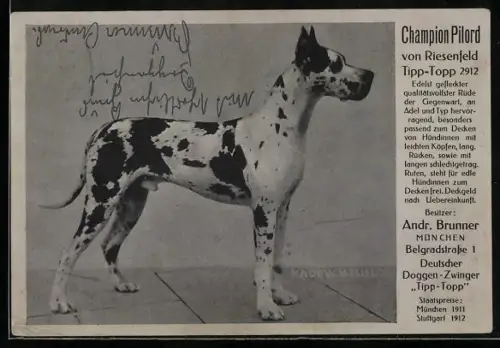 Champion Pilord
von Riesenfeld
Tipp-Topp 2912
Edelst gefleckter
qualitätsvollster Rüde
der Gegenwart, an
Adel und Typ hervor-
ragend, besonders
passend zum Decken
von Hündinnen mit
leichten Köpfen, lang.
Rücken, sowie mit
langen schlechtgetrag.
Ruten, steht für edle
Hündinnen zum
Decken frei. Deckgeld
nach Uebereinkunft.
Besitzer:
Andr. Brunner
MÜNCHEN
Belgradstraße 1
Deutscher
Doggen-Zwinger
„Tipp-Topp"
Staatspreise:
München 1911
Stuttgart 1912